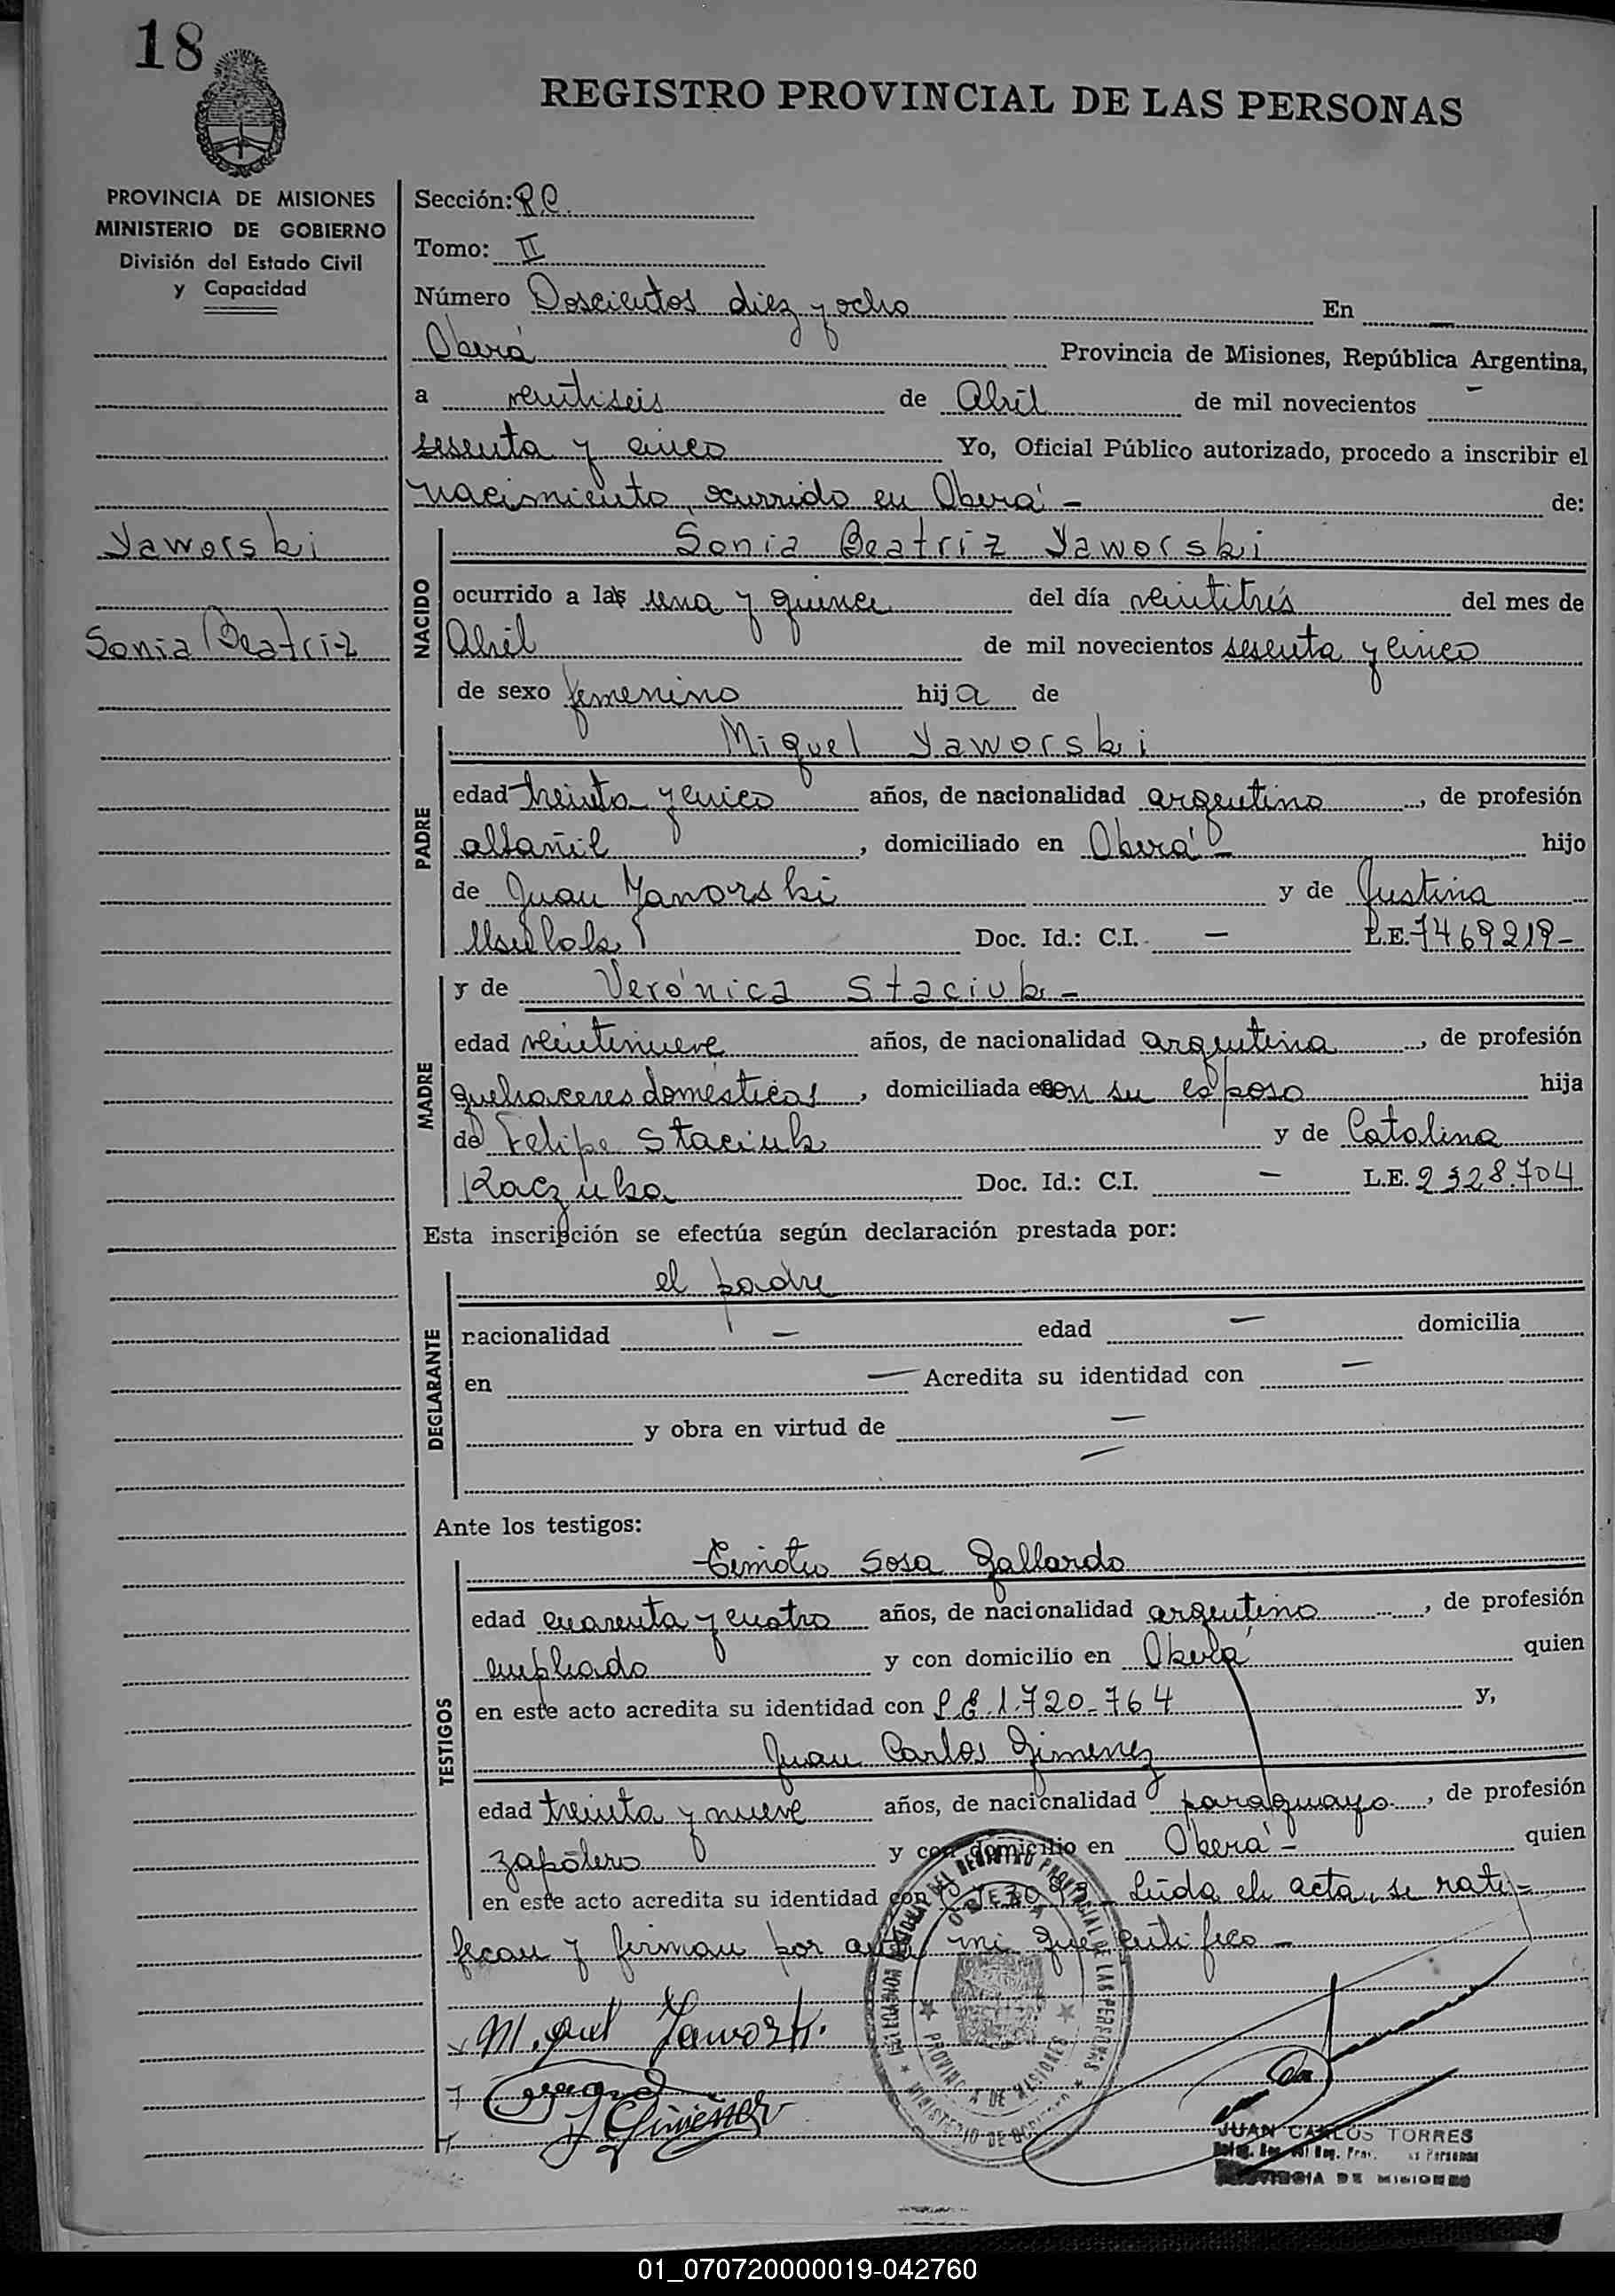 18
REGISTRO PROVINCIAL DE LAS PERSONAS
PROVINCIA DE MISIONES
MINISTERIO DE GOBIERNO
División del Estado Civil
y Capacidad
Yaworski
Sonia Beatriz
Sección:
Tomo: II
Número Doscientos diez y ocho En —
Oberá Provincia de Misiones, República Argentina,
a veintiseis de Abril de mil novecientos -
sesenta y cinco Yo, Oficial Público autorizado, procedo a inscribir el
nacimiento, ocurrido en Oberá - de:
NACIDO
Sonia Beatriz Yaworski
ocurrido a las una y quince del día veintitrés del mes de
Abril de mil novecientos sesenta y cinco
de sexo femenino hija de
PADRE
Miguel Yaworski
edad treinta y cinco años, de nacionalidad argentino, de profesión
albañil, domiciliado en Oberá - hijo
de Juan Yaworski y de Justina
Doc. Id.: C.I. — L.E. 7469219-
MADRE
y de Verónica Staciuk -
edad veintinueve años, de nacionalidad argentina, de profesión
quehaceres domésticos, domiciliada con su esposo hija
de Felipe Staciuk y de Catalina
Doc. Id.: C.I. — L.E. 2328.704
Esta inscripción se efectúa según declaración prestada por:
DECLARANTE
el padre
nacionalidad — edad — domicilia
en — Acredita su identidad con —
y obra en virtud de —
—
Ante los testigos:
TESTIGOS
Timoteo Sosa Gallardo
edad cuarenta y cuatro años, de nacionalidad argentino, de profesión
empleado y con domicilio en Oberá quien
en este acto acredita su identidad con L.E. 1.720.764 y,
Juan Carlos Gimenez
edad treinta y nueve años, de nacionalidad paraguayo, de profesión
zapatero y con domicilio en Oberá - quien
en este acto acredita su identidad con Leída el acta, se rati-
fican y firman por ante mi que certifico -
Miguel Yaworski
Gimenez
PROVINCIA DE MISIONES
JUAN CARLOS TORRES
PROVINCIA DE MISIONES
01_070720000019-042760